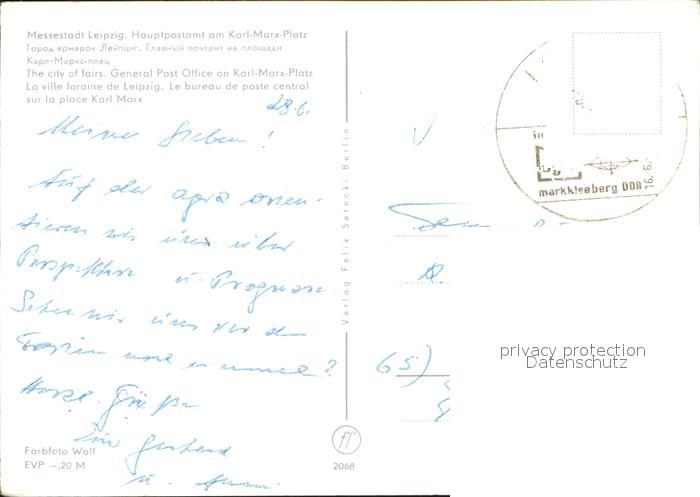 Messestadt Leipzig. Hauptpostamt am Karl-Marx-Platz
Город ярмарок Лейпциг. Главный почтамт на площади
Карл-Маркс-плац
The city of fairs. General Post Office on Karl-Marx-Platz
La ville foraine de Leipzig. Le bureau de poste central
sur la place Karl Marx
28.6.
Meine Lieben!
Auf der agra orien-
tieren wir uns über
Perspektive u. Prognose.
Sehen wir uns vor d
Ferien noch einmal?
Herzl. Grüße
Euer Gerhard
u.
Farbfoto Wolf
EVP –,20 M
Verlag Felix Setecki Berlin
ff
2068
markkleeberg DDR
16.6
65)
privacy protection
Datenschutz